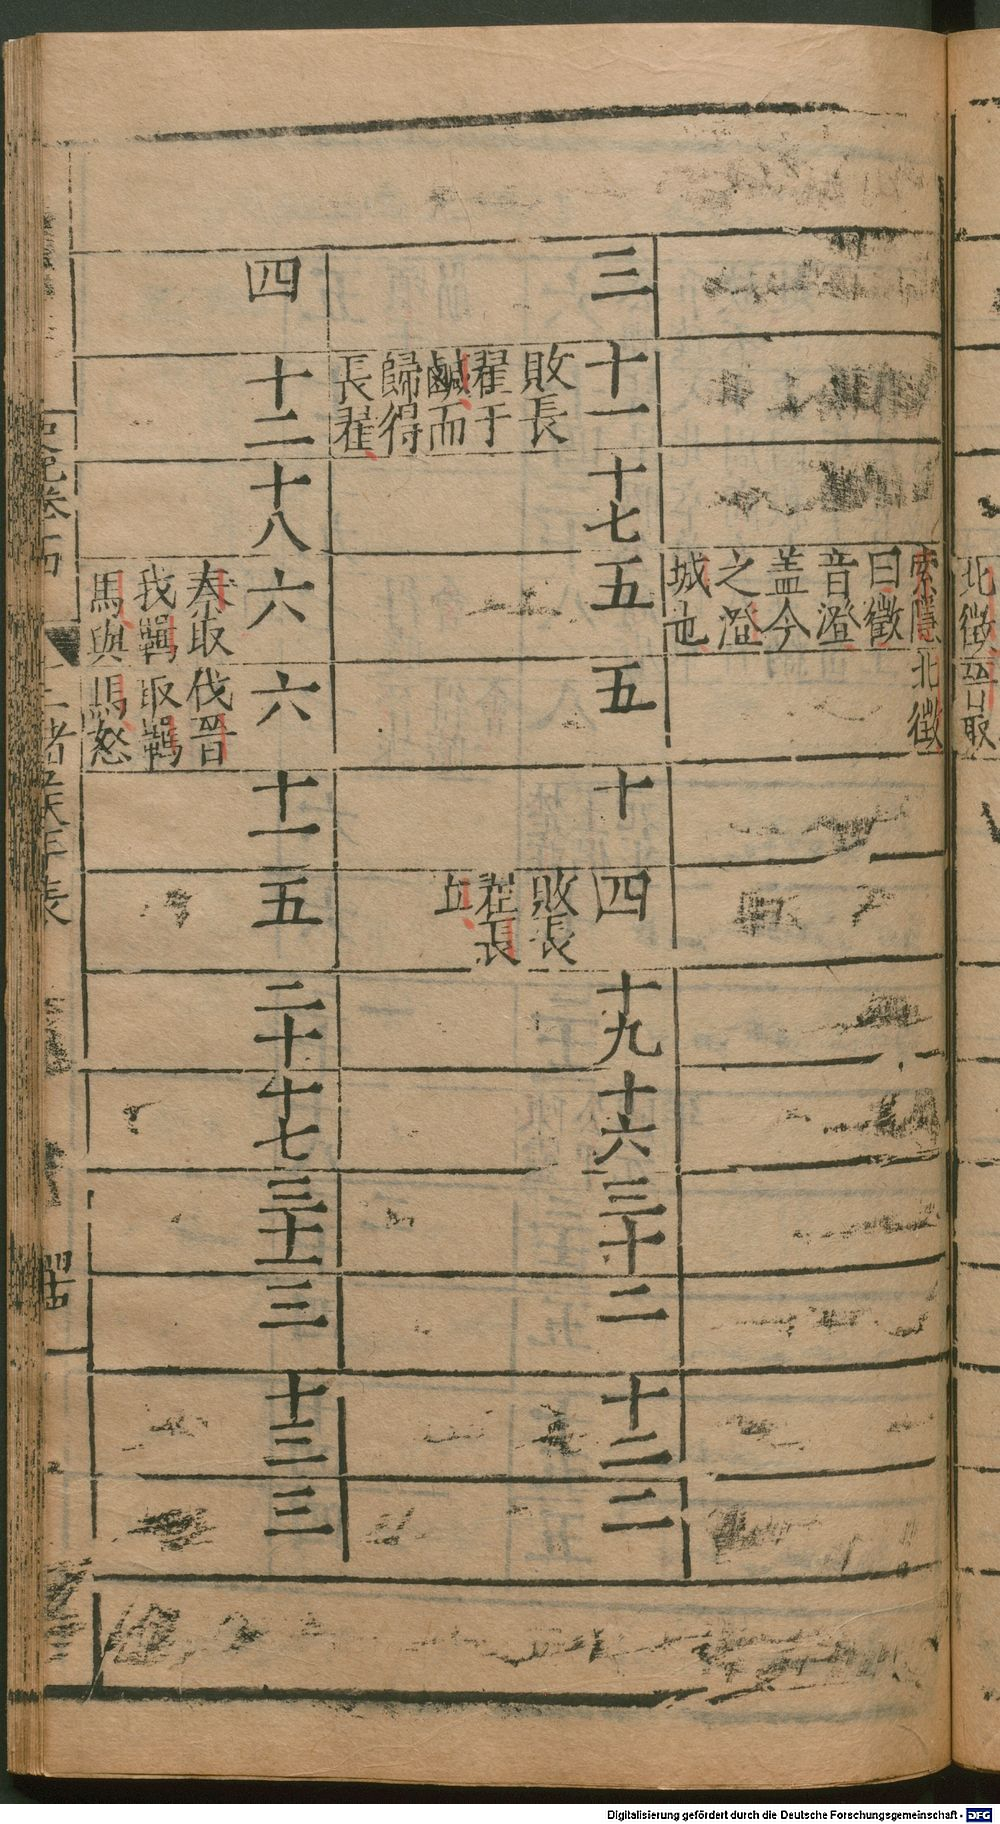 北徵
晉取
索隱
曰徵
音澄
盖今
之澄
城也
北徵
三
十一
十七
五
五
十
四
十九
十六
三十
二
十二
二
敗長
翟于
鹹而
歸得
長翟
敗長
翟長
丘
四
十二
十八
六
六
十一
五
二十
十七
三十一
三
十三
三
秦取
我羈
馬與
伐晉
取羈
馬怒
Digitalisierung gefördert durch die Deutsche Forschungsgemeinschaft - DFG